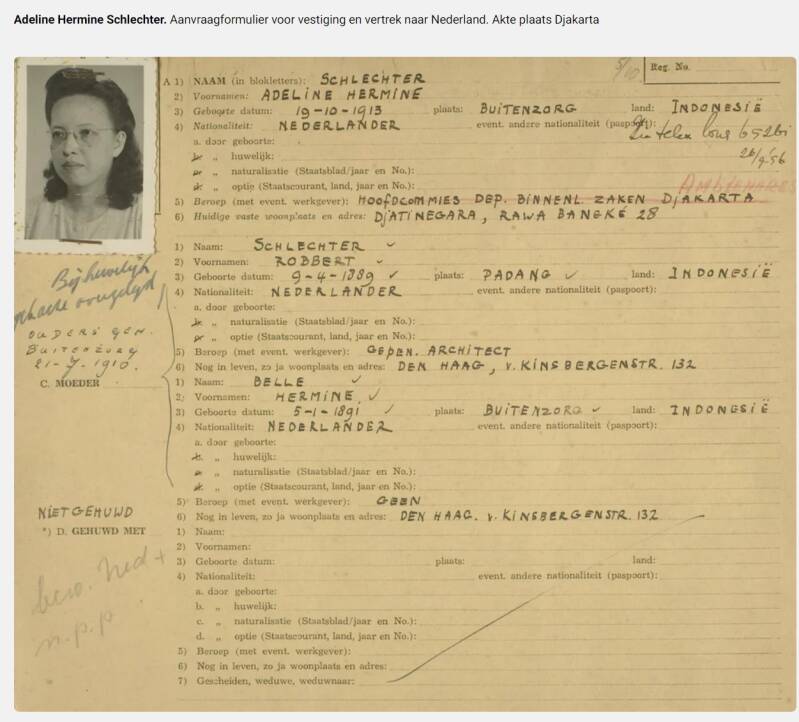 Adeline Hermine Schlechter. Aanvraagformulier voor vestiging en vertrek naar Nederland. Akte plaats Djakarta
Reg. No.
A 1) NAAM (in blokletters): SCHLECHTER
2) Voornamen: ADELINE HERMINE
3) Geboorte datum: 19-10-1913 plaats: BUITENZORG land: INDONESIË
4) Nationaliteit: NEDERLANDER event. andere nationaliteit (paspoort):
a. door geboorte:
b. „ huwelijk:
26/9 '56
„ naturalisatie (Staatsblad/jaar en No.):
„ optie (Staatscourant, land, jaar en No.):
5) Beroep (met event. werkgever): HOOFDCOMMIES DEP. BINNENL. ZAKEN DJAKARTA
6) Huidige vaste woonplaats en adres: DJATINEGARA, RAWA BANGKÉ 28
1) Naam: SCHLECHTER
2) Voornamen: ROBBERT
3) Geboorte datum: 9-4-1889 plaats: PADANG land: INDONESIË
4) Nationaliteit: NEDERLANDER event. andere nationaliteit (paspoort):
a. door geboorte:
„ naturalisatie (Staatsblad/jaar en No.):
„ optie (Staatscourant, land, jaar en No.):
Bij huwelijk
OUDERS GEH.
BUITENZORG
21-7-1910.
5) Beroep (met event. werkgever): GEPEN. ARCHITECT
6) Nog in leven, zo ja woonplaats en adres: DEN HAAG, v. KINSBERGENSTR. 132
C. MOEDER
1) Naam: BELLE
2) Voornamen: HERMINE
3) Geboorte datum: 5-1-1891 plaats: BUITENZORG land: INDONGSIË
4) Nationaliteit: NEDERLANDER event. andere nationaliteit (paspoort):
a. door geboorte:
b. „ huwelijk:
„ naturalisatie (Staatsblad/jaar en No.):
„ optie (Staatscourant, land, jaar en No.):
5) Beroep (met event. werkgever): GEEN
6) Nog in leven, zo ja woonplaats en adres: DEN HAAG. v. KINSBERGENSTR. 132
NIET GEHUWD
*) D. GEHUWD MET
1) Naam:
2) Voornamen:
3) Geboorte datum: plaats: land:
4) Nationaliteit: event. andere nationaliteit (paspoort):
a. door geboorte:
b. „ huwelijk:
c. „ naturalisatie (Staatsblad/jaar en No.):
d. „ optie (Staatscourant, land, jaar en No.):
bew. Ned +
n.p.p.
5) Beroep (met event. werkgever):
6) Nog in leven, zo ja woonplaats en adres:
7) Gescheiden, weduwe, weduwnaar: